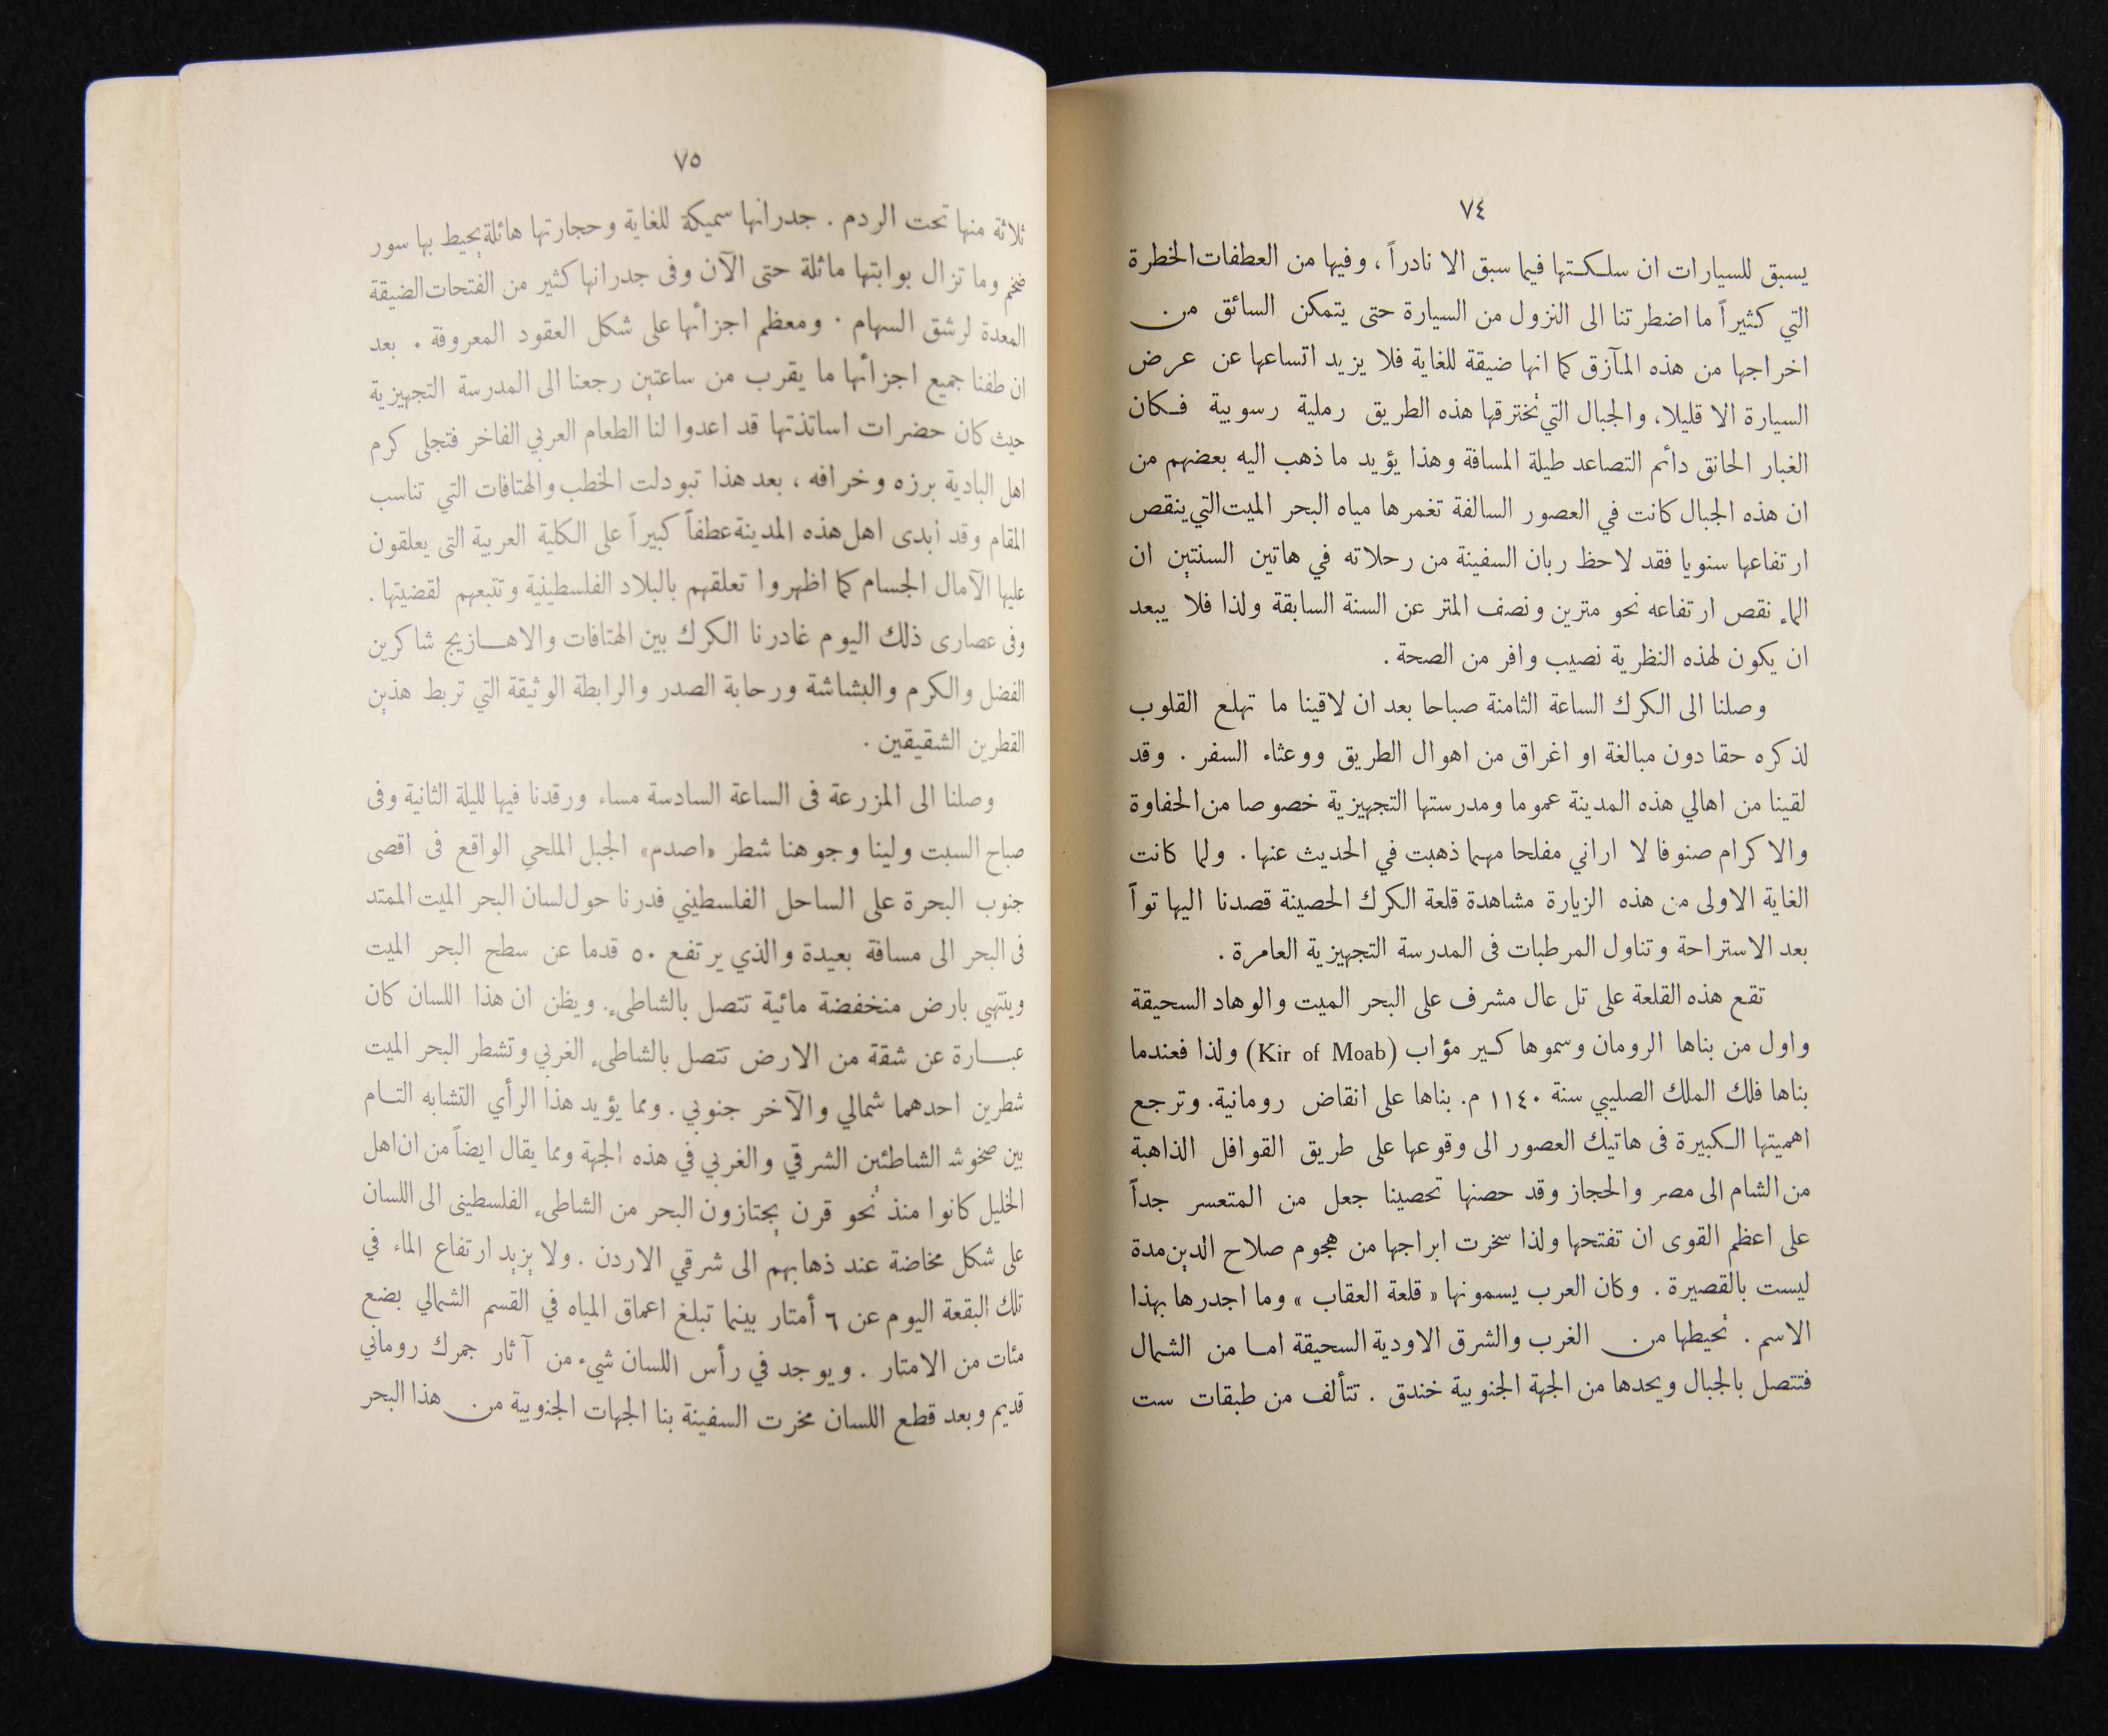 ٧٤
يسبق للسيارات ان سلكتها فيما سبق الا نادراً ، وفيها من العطفات الخطرة
التي كثيراً ما اضطرتنا الى النزول من السيارة حتى يتمكن السائق من
اخراجها من هذه المآزق كما انها ضيقة للغاية فلا يزيد اتساعها عن عرض
السيارة الا قليلا، والجبال التي تخترقها هذه الطريق رملية رسوبية فكان
الغبار الخانق دائم التصاعد طيلة المسافة وهذا يؤيد ما ذهب اليه بعضهم من
ان هذه الجبال كانت في العصور السالفة تغمرها مياه البحر الميت التي ينقص
ارتفاعها سنويا فقد لاحظ ربان السفينة من رحلاته في هاتين السنتين ان
الماء نقص ارتفاعه نحو مترين ونصف المتر عن السنة السابقة ولذا فلا يبعد
ان يكون لهذه النظرية نصيب وافر من الصحة .
وصلنا الى الكرك الساعة الثامنة صباحا بعد ان لاقينا ما تهلع القلوب
لذكره حقا دون مبالغة او اغراق من اهوال الطريق ووعثاء السفر . وقد
لقينا من اهالي هذه المدينة عموما ومدرستها التجهيزية خصوصا من الحفاوة
والاكرام صنوفا لا اراني مفلحا مهما ذهبت في الحديث عنها . ولما كانت
الغاية الاولى من هذه الزيارة مشاهدة قلعة الكرك الحصينة قصدنا اليها تواً
بعد الاستراحة وتناول المرطبات فى المدرسة التجهيزية العامرة .
تقع هذه القلعة على تل عال مشرف على البحر الميت والوهاد السحيقة
واول من بناها الرومان وسموها كير مؤاب (Kir of Moab) ولذا فعندما
بناها فلك الملك الصليبي سنة ١١٤٠ م. بناها على انقاض رومانية. وترجع
اهميتها الكبيرة فى هاتيك العصور الى وقوعها على طريق القوافل الذاهبة
من الشام الى مصر والحجاز وقد حصنها تحصينا جعل من المتعسر جداً
على اعظم القوى ان تفتحها ولذا سخرت ابراجها من هجوم صلاح الدين مدة
ليست بالقصيرة . وكان العرب يسمونها « قلعة العقاب » وما اجدرها بهذا
الاسم . تحيطها من الغرب والشرق الاودية السحيقة اما من الشمال
فتتصل بالجبال ويحدها من الجهة الجنوبية خندق . تتألف من طبقات ست
٧٥
ثلاثة منها تحت الردم . جدرانها سميكة للغاية وحجارتها هائلة يحيط بها سور
ضخم وما تزال بوابتها ماثلة حتى الآن وفى جدرانها كثير من الفتحات الضيقة
المعدة لرشق السهام . ومعظم اجزائها على شكل العقود المعروفة . بعد
ان طفنا جميع اجزائها ما يقرب من ساعتين رجعنا الى المدرسة التجهيزية
حيث كان حضرات اساتذتها قد اعدوا لنا الطعام العربي الفاخر فتجلى كرم
اهل البادية برزه وخرافه ، بعد هذا تبودلت الخطب والهتافات التي تناسب
المقام وقد ابدى اهل هذه المدينة عطفاً كبيراً على الكلية العربية التى يعلقون
عليها الآمال الجسام كما اظهروا تعلقهم بالبلاد الفلسطينية وتتبعهم لقضيتها .
وفى عصارى ذلك اليوم غادرنا الكرك بين الهتافات والاهازيج شاكرين
الفضل والكرم والبشاشة ورحابة الصدر والرابطة الوثيقة التي تربط هذين
القطرين الشقيقين .
وصلنا الى المزرعة فى الساعة السادسة مساء ورقدنا فيها لليلة الثانية وفى
صباح السبت ولينا وجوهنا شطر «اصدم» الجبل الملحي الواقع فى اقصى
جنوب البحرة على الساحل الفلسطيني فدرنا حول لسان البحر الميت الممتد
فى البحر الى مسافة بعيدة والذي يرتفع ٥٠ قدما عن سطح البحر الميت
وينتهي بارض منخفضة مائية تتصل بالشاطىء. ويظن ان هذا اللسان كان
عبارة عن شقة من الارض تتصل بالشاطىء الغربي وتشطر البحر الميت
شطرين احدهما شمالي والآخر جنوبي . ومما يؤيد هذا الرأي التشابه التام
بين صخوش الشاطئين الشرقي والغربي في هذه الجهة ومما يقال ايضاً من ان اهل
الخليل كانوا منذ نحو قرن يجتازون البحر من الشاطىء الفلسطينى الى اللسان
على شكل مخاضة عند ذهابهم الى شرقي الاردن . ولا يزيد ارتفاع الماء في
تلك البقعة اليوم عن ٦ أمتار بينما تبلغ اعماق المياه في القسم الشمالي بضع
مئات من الامتار . ويوجد في رأس اللسان شيء من آثار جمرك روماني
قديم وبعد قطع اللسان مخرت السفينة بنا الجهات الجنوبية من هذا البحر